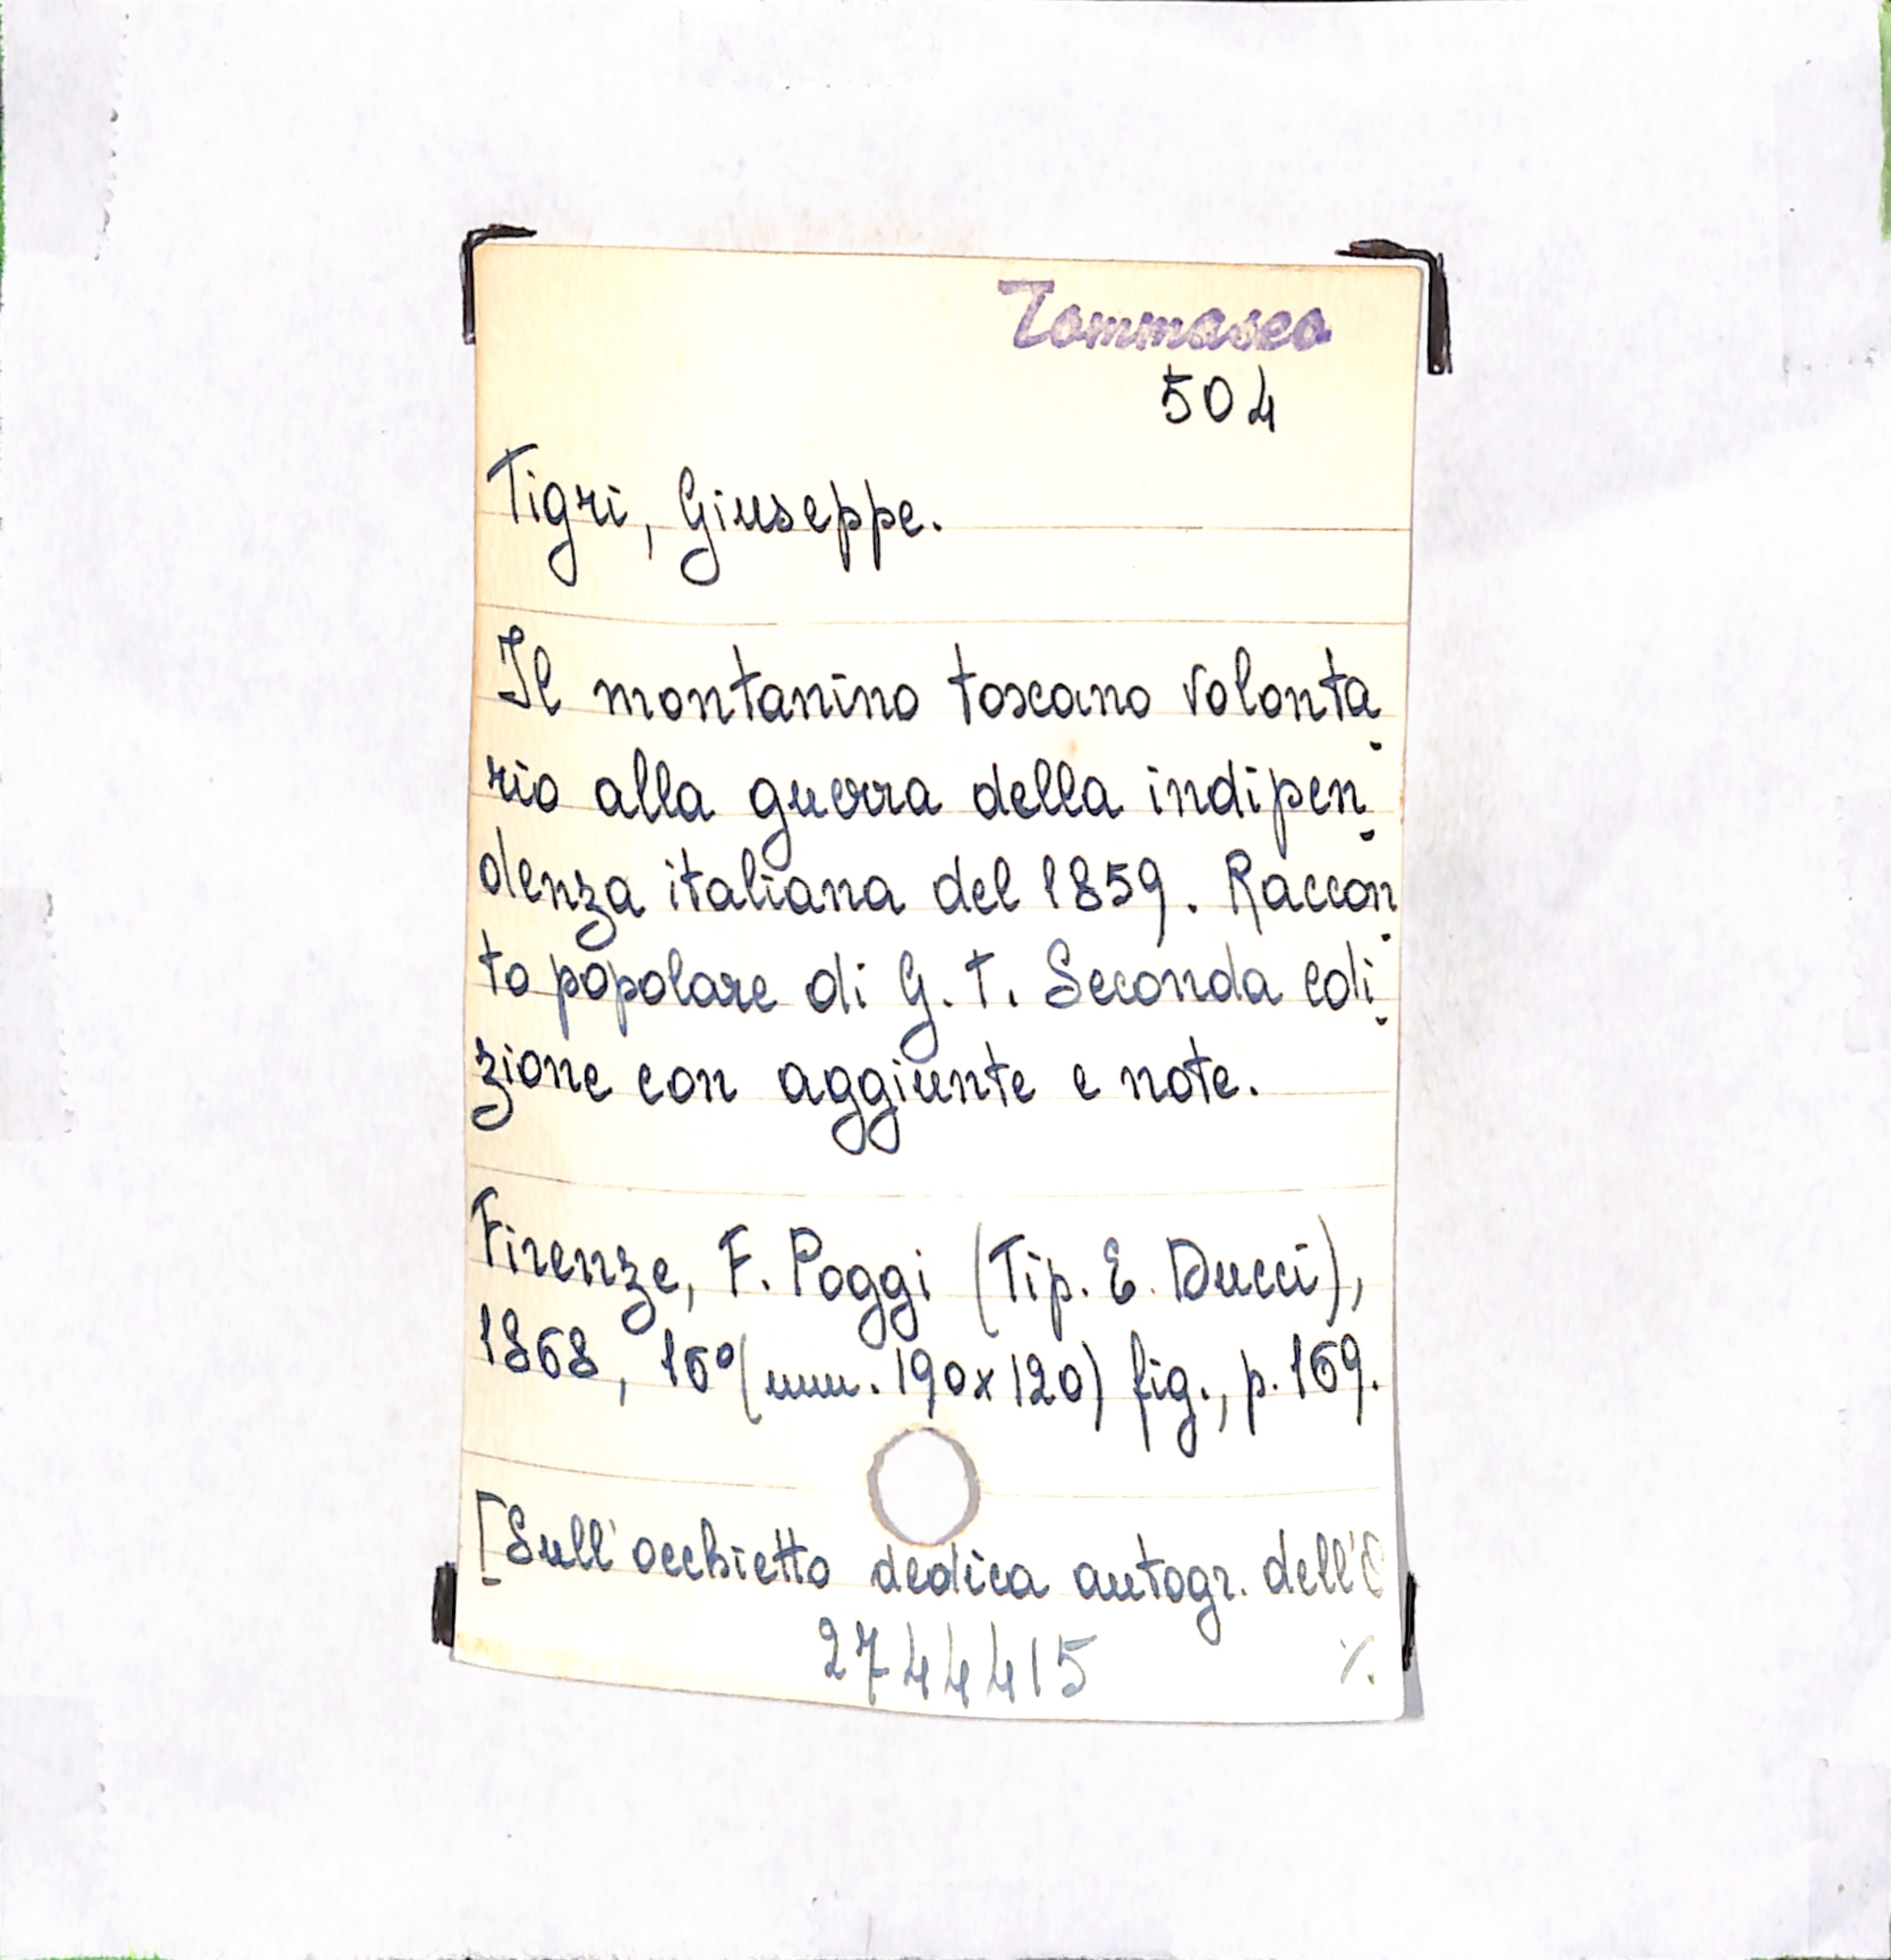 Tommaseo
504
Tigri, Giuseppe.
Il montanino toscano volonta-
rio alla guerra della indipen-
denza italiana del 1859. Raccon-
to popolare di G. T. Seconda edi-
zione con aggiunte e note.
Firenze, F. Poggi (Tip. E. Ducci),
1868, 16º (mm. 190x120) fig., p. 169.
[Sull'occhietto dedica autogr. dell'
2744415 ./.